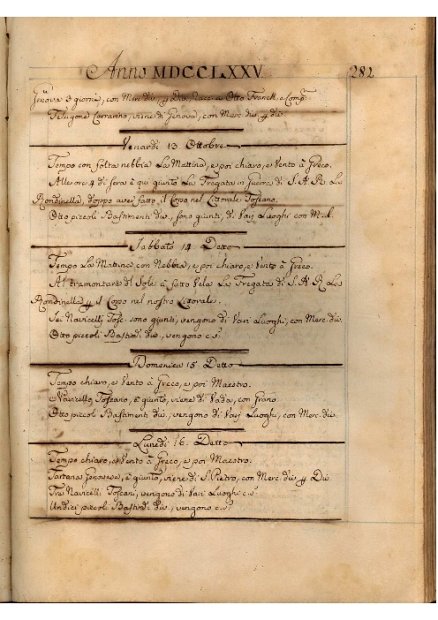 Anno MDCCLXXV. 282
Genova 3 giorni, con Merc. div. Otto Franch. e Comp.
Feluqone Corranno, viene di Genova, con Merc. div. di
Venardi 13 Ottobre
Tempo con folta nebbia La Mattina, e poi chiaro, e Vento à Greco.
Alle ore 4 di sera è qui giunto La Fregata in Guerra di S. A. R. La
Rondinella, doppo aver fatto il Corso nel Littorale Toscano.
Otto piccoli Bastimenti div. sono giunti, di Varj Luoghi con
Sabbato 14 Detto
Tempo La Mattina con Nebbia, e poi chiaro, e Vento à Greco.
Al tramontare di Sole, à fatto Vela La Fregata di S. A. R. La
Rondinella il Corso nel nostro Littorale.
Sei Navicelli Tosc. sono giunti, vengono di Vari Luoghi, con Merc. div.
Otto piccoli Bast. di div. vengono c. s.
Domenica 15 Detto
Tempo chiaro, e Vento à Greco, e poi Maestro.
Navicello Toscano, è giunto, viene di Vada, con Grano
Otto piccoli Bastimenti div. vengono di Varj Luoghi, con Merc. div.
Lunedi 16 Detto
Tempo chiaro, e Vento à Greco, e poi Maestro.
Tartana Genovese, è giunta, viene di S. Pietro, con Merc. div.
Tre Navicelli Toscani, vengono di Vari Luoghi c. s.
Undici piccoli Bast. di div. vengono c. s.